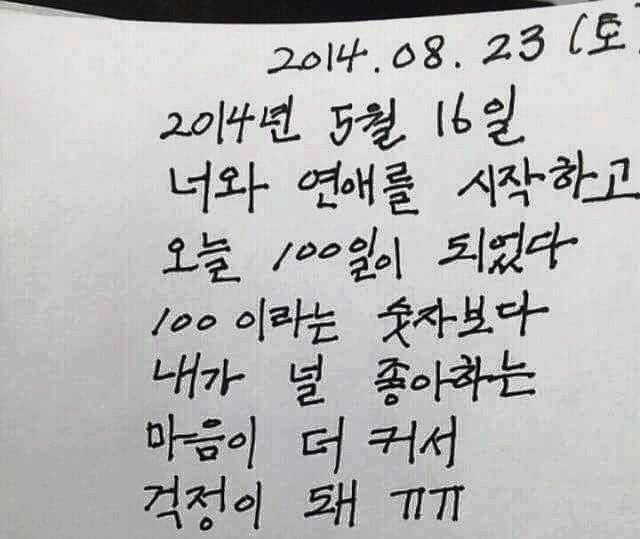 2014.08.23 (토
2014년 5월 16일
너와 연애를 시작하고
오늘 100일이 되었다
100이라는 숫자보다
내가 널 좋아하는
마음이 더 커서
걱정이 돼 ㅠㅠ